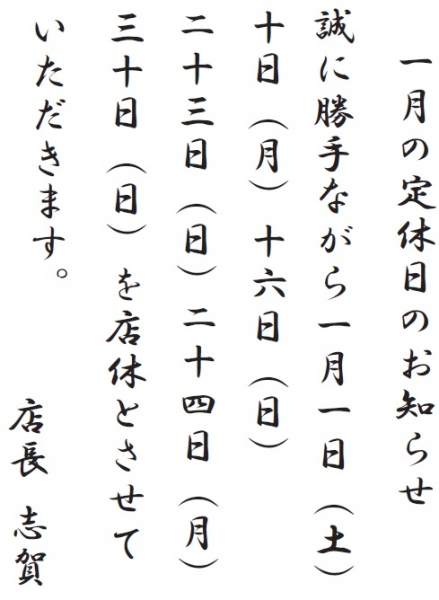 一月の定休日のお知らせ
誠に勝手ながら一月一日（土）
十日（月）十六日（日）
二十三日（日）二十四日（月）
三十日（日）を店休とさせて
いただきます。
店長 志賀